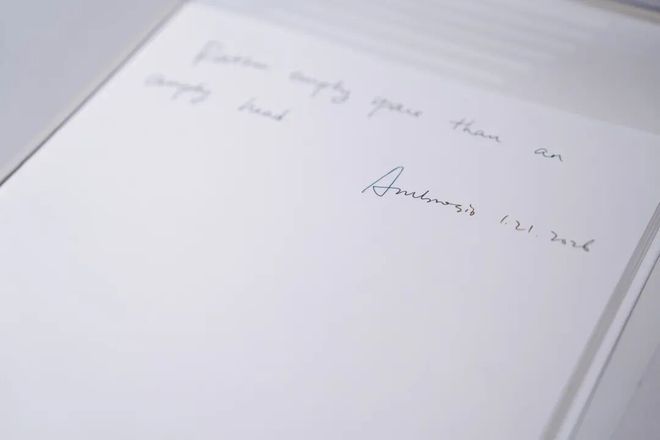 Rather empty space than an
empty head
Ambrosio 1.21.2026